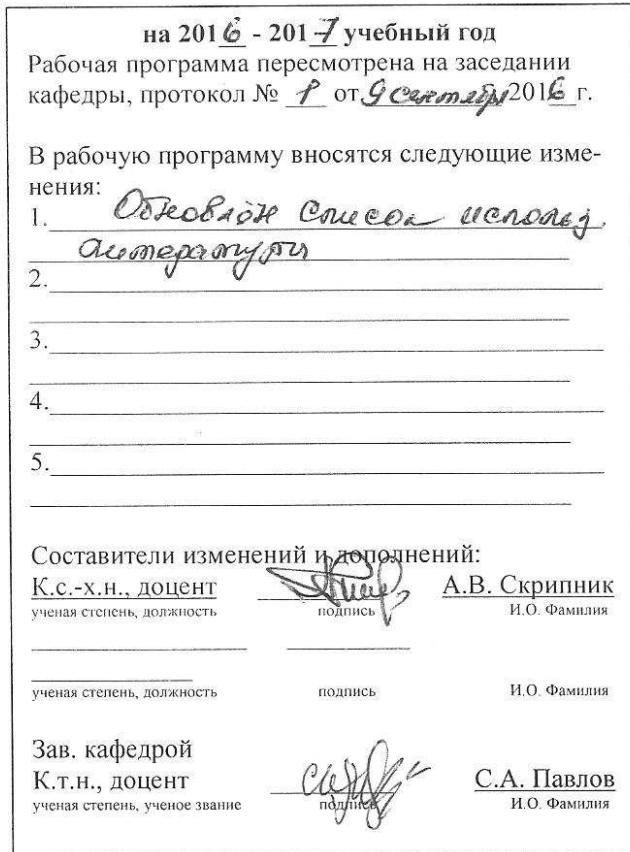 на 2016 - 2017 учебный год
Рабочая программа пересмотрена на заседании
кафедры, протокол № 1 от 9 сентября 2016 г.
В рабочую программу вносятся следующие изме-
нения:
1. Обновлён список использ.
литературы
2.
3.
4.
5.
Составители изменений и дополнений:
К.с.-х.н., доцент А.В. Скрипник
ученая степень, должность подпись И.О. Фамилия
ученая степень, должность подпись И.О. Фамилия
Зав. кафедрой
К.т.н., доцент С.А. Павлов
ученая степень, ученое звание подпись И.О. Фамилия